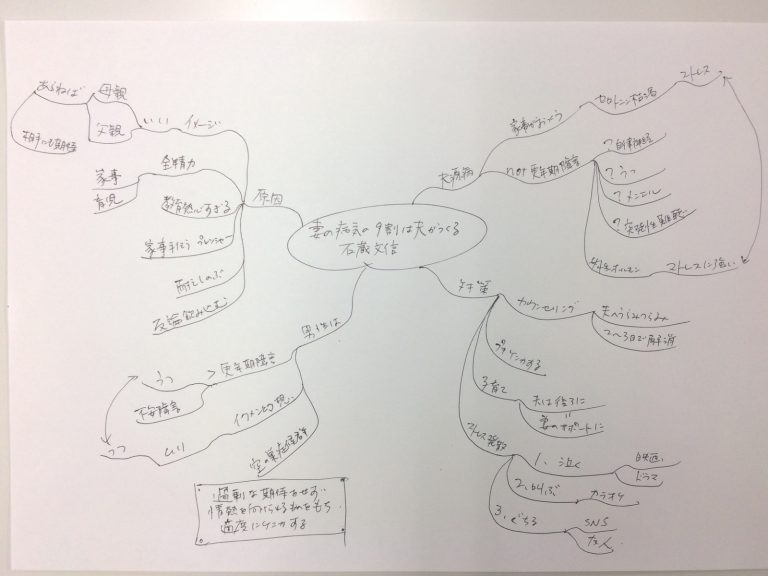 妻の病気の9割は夫がつくる
石蔵文信
原因
いい イメージ
母親
父親
あらねば
相手にも期待
全精力
家事
育児
教育熱心すぎる
家事手伝う プレッシャー
耐えしのぶ
反論飲み込む
夫原病
セロトニン枯渇
ストレス
not 更年期障害
? 自律神経
? うつ
? メンエル
? 突発性難聴
女性ホルモン
ストレスに強い
対策
カウンセリング
夫へうらみつらみ
2〜3日で解消
プチゲンカする
子育て
夫は役に
妻のサポートに
ストレス発散
1、泣く
映画
ドラマ
2、叫ぶ
カラオケ
3、ぐちる
SNS
友人
男性は
> 更年期障害
うつ
不安障害
イクメン
ムリ
うつ
空の巣症候群
過剰な期待をせず
情熱を向けられるものをもち
適度にケンカする